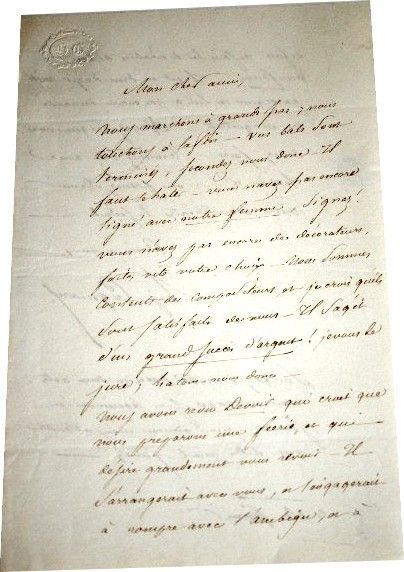 Mon cher ami,
Nous marchons à grands pas ; nous
touchons à la fin — vos bals sont
terminés, secondez nous donc — Il
faut se hater — vous n'avez pas encore
signé avec notre femme, signez !
vous n'avez pas encore des décorateurs,
faites vite votre choix — Nous sommes
contents des compositeurs et je crois qu'ils
sont satisfaits de nous — Il s'agit
d'un grand succès d'argent ! je vous le
jure ; hatons-nous donc —
Nous avons revu Devoir qui croit que
nous préparons une féerie, et qui
désire grandement vous revoir — Il
s'arrangerait avec vous, et s'engagerait
à rompre avec l'ambigu, et à